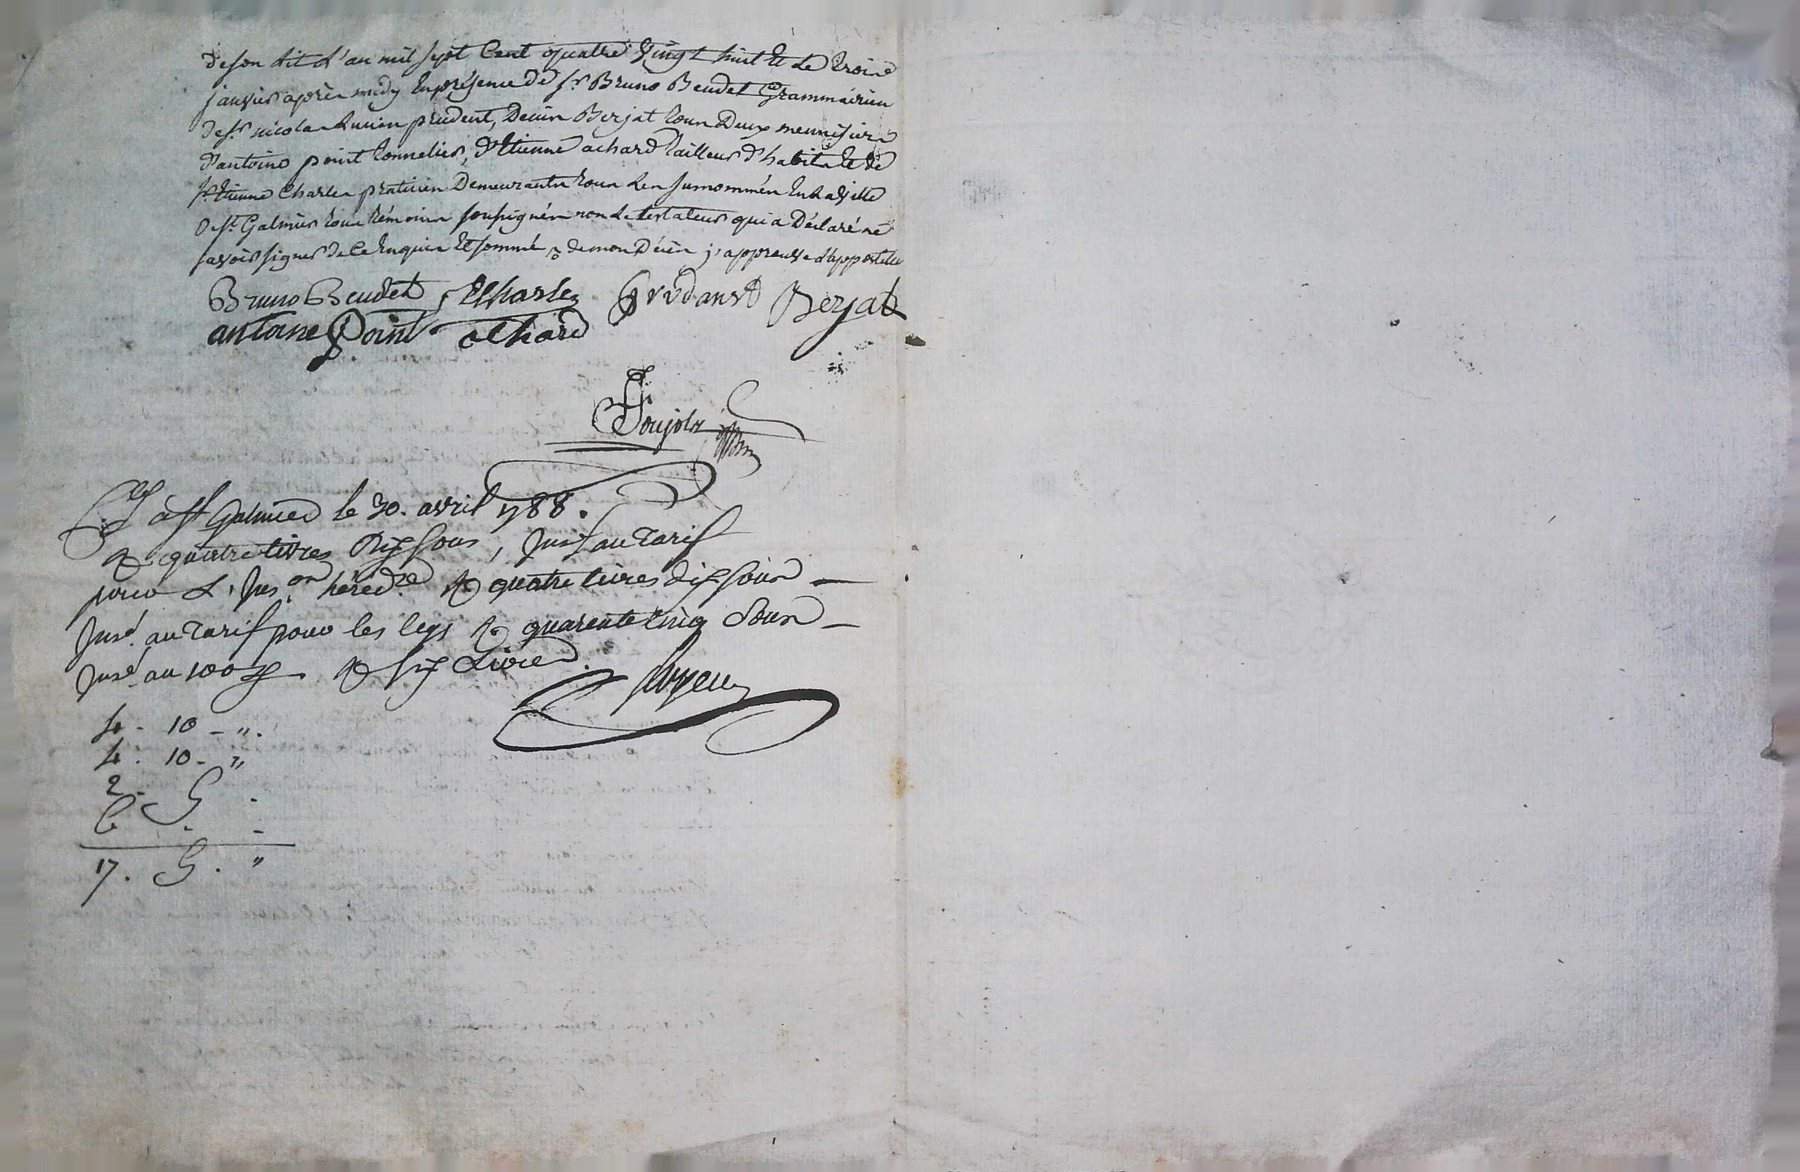 de son dit l'an mil sept Cent quatre vingt huit et Le trois
janvier après midy En présence de sr Bruno Beudet Grammairien
de sr nicolas Lucien prudent, Berjat tous Deux menuisiers
d'antoine point tonnelier, d'Etienne achard tailleur d'habits et de
Etienne Charles praticien Demeurants tous Les surnommés En La ville
de st Galmier tous témoins soussignés non Le testateur qui a Déclaré ne
savoir signer de Ce Enquis Et sommé j'approuve
Bruno Beudet ECharles Prudant Berjat
antoine Point achard
Poujols
à st Galmier le 30. avril 1788.
R quatre livres Dix sous, Insé au Tarif
pour L'Insон héréd.re R quatre livres dix sous —
Insé au Tarif pour les legs R quarente cinq Sous —
Insé au 100e R six Livres.
4 - 10 - ".
4 . 10 - "
2 - 5 .
6 . -
17 . 5 . "